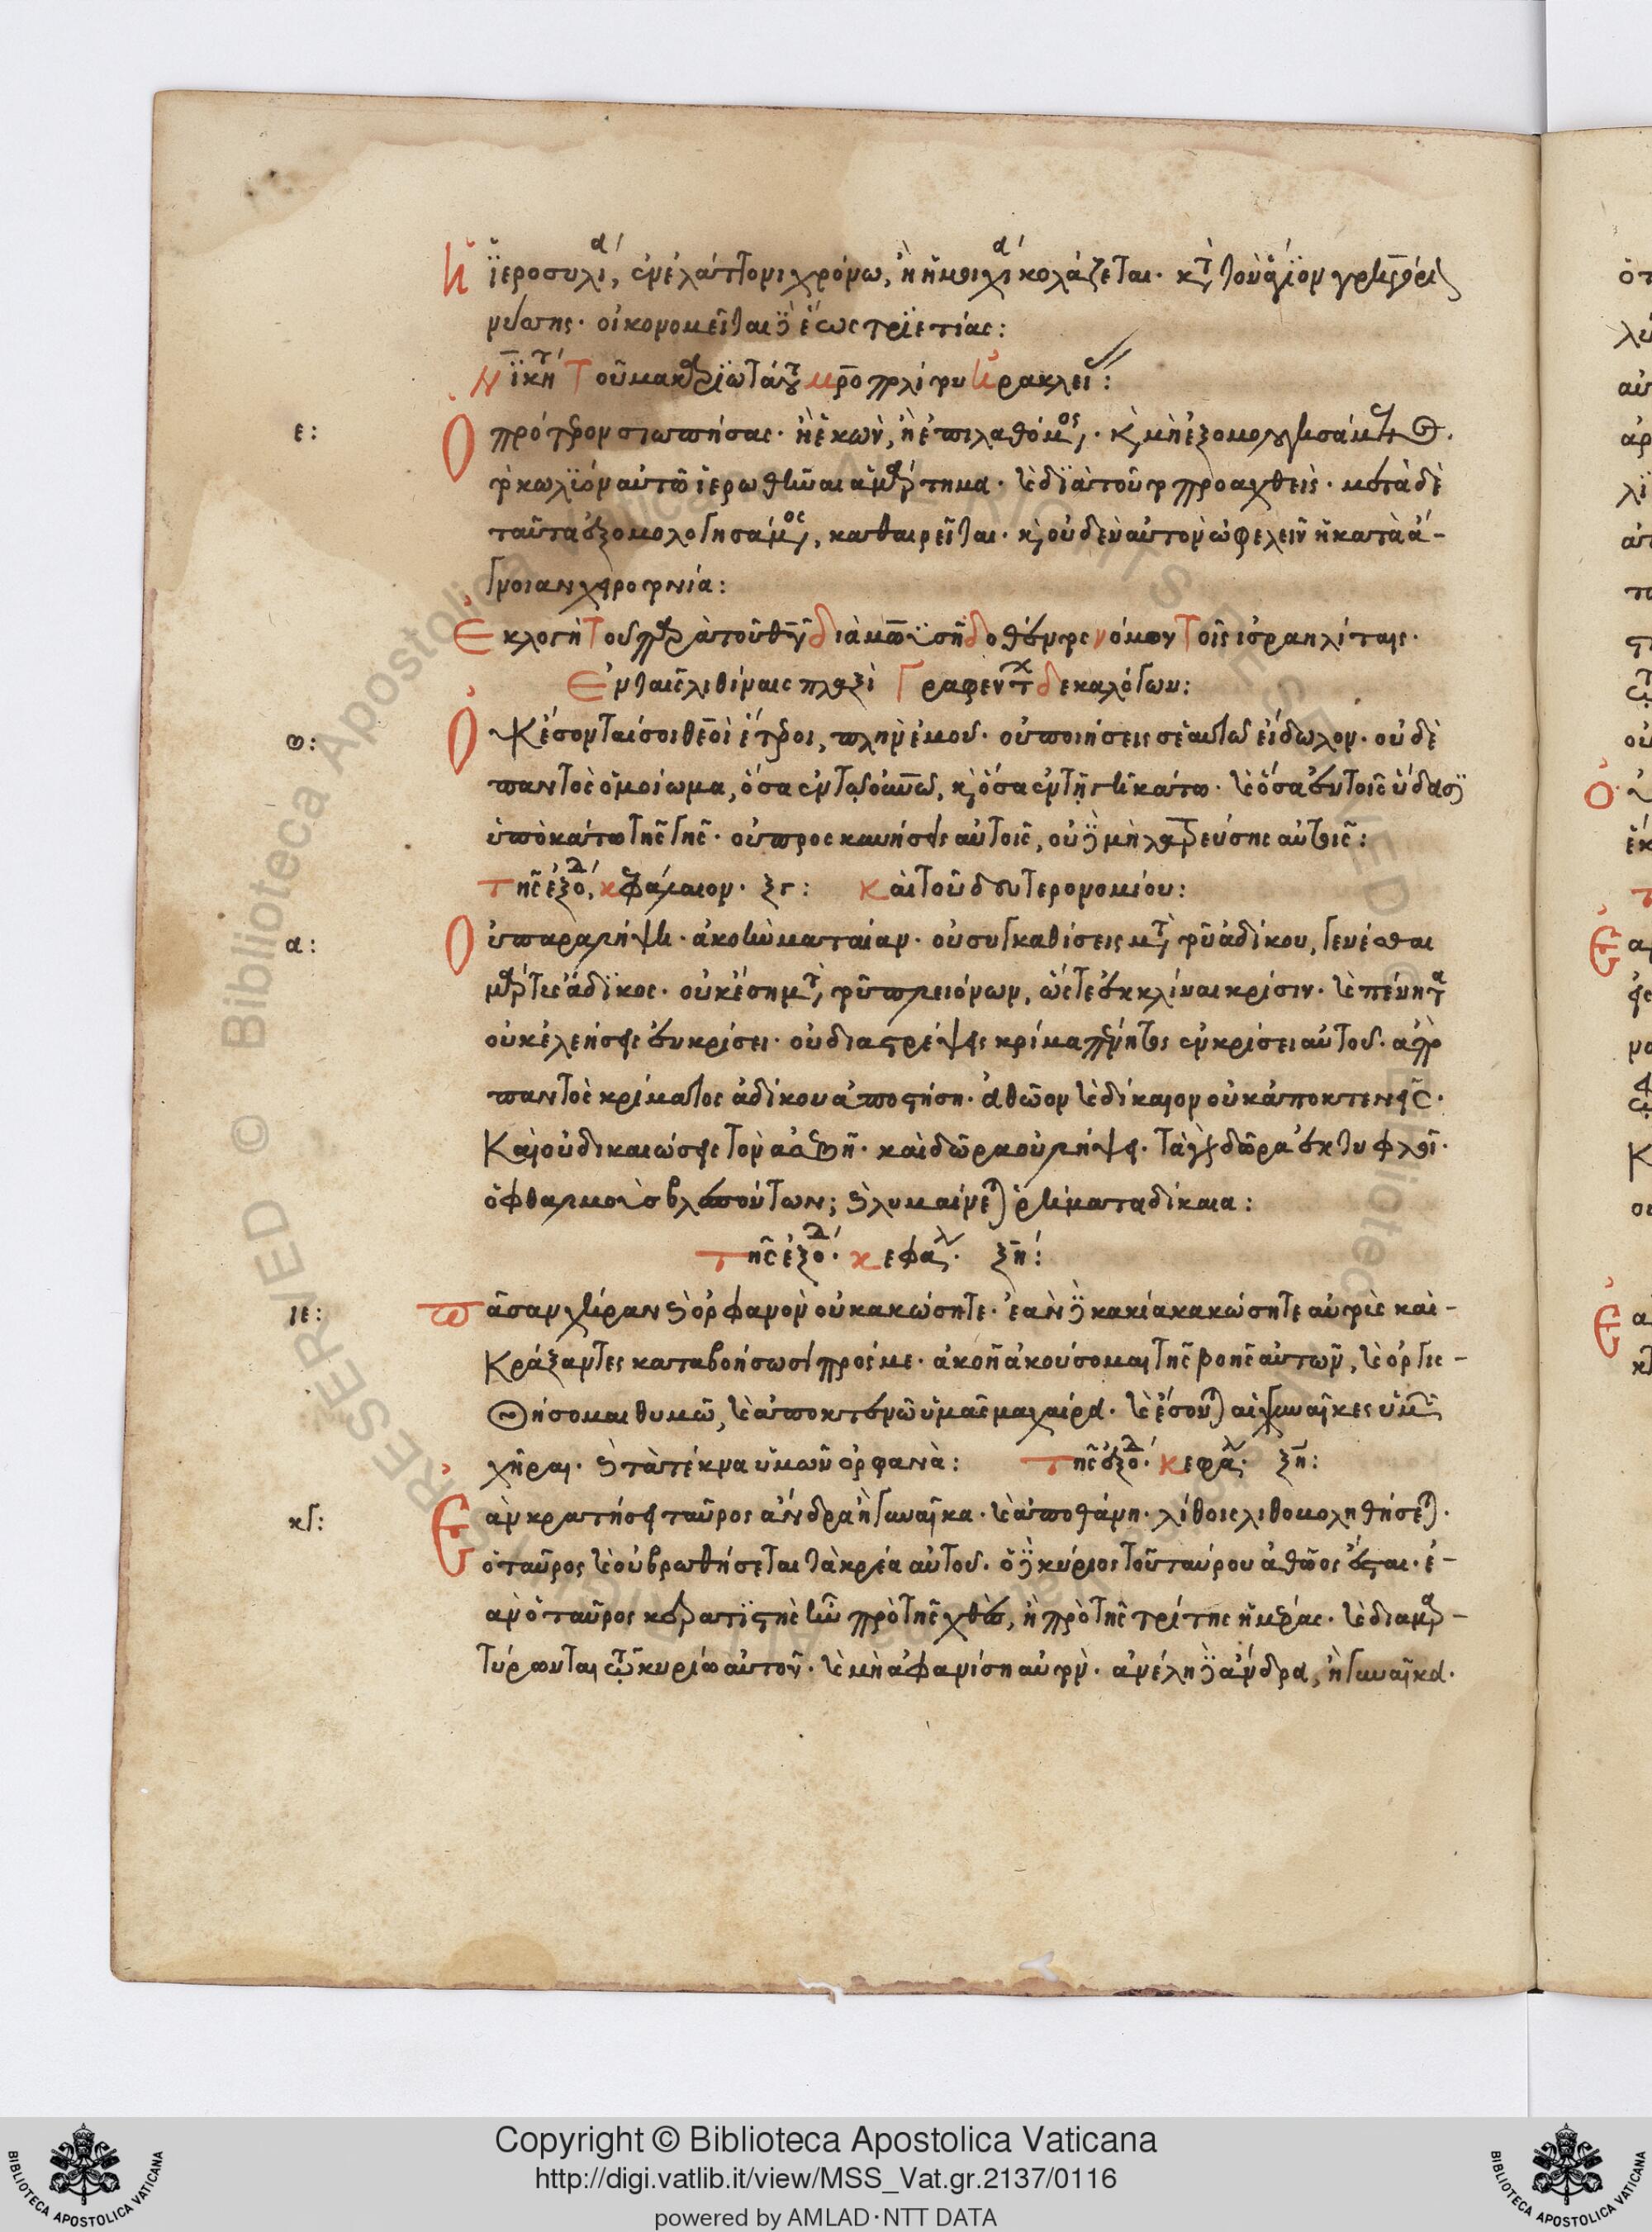 Ἡ ἱεροσυλία, ἐν ἐλάττονι χρόνω, ἢ ἡ μοιχεία κολάζεται. κατὰ τὸν ἅγιον γρηγόριον
νύσης. οἰκονομεῖται δὲ ἕως τριετίας:
Νικήτα Τοῦ μακαριωτάτου μητροπολίτου Ἡρακλείας:
ε:
Ὁ πρότερον σιωπήσας. ἢ ἑκὼν, ἢ ἐπιλαθόμενος. καὶ μὴ ἐξομολογησάμενος
τὸ κωλῦον αὐτῶ ἱερωθῆναι ἁμάρτημα. καὶ διὰ τοῦτο προαχθεὶς. μετὰ δὲ
ταῦτα ἐξομολογησάμενος, καθαιρεῖται. καὶ οὐδὲν αὐτὸν ὠφελεῖ ἡ κατὰ ἄ-
γνοιαν χειροτονία:
Ἐκλογὴ Τοῦ παρὰ τοῦ θεοῦ διὰ μωϋσῆ δοθέντος νόμου Τοῖς ἰσραηλίταις.
Ἐν ταῖς λιθίναις πλαξὶ Γραφέντων δεκαλόγων:
Οὐκ ἔσονται σοι θεοὶ ἕτεροι, πλὴν ἐμοῦ. οὐ ποιήσεις σεαυτῶ εἴδωλον. οὐδὲ
παντὸς ὁμοίωμα, ὅσα ἐν τῶ οὐρανῶ, καὶ ὅσα ἐν τῆ γῆ κάτω. καὶ ὅσα ἐν τοῖς ὕδασι
ὑποκάτω τῆς γῆς. οὐ προσκυνήσεις αὐτοῖς, οὐδὲ μὴ λατρεύσης αὐτοῖς:
Τῆς ἐξόδου, κεφάλαιον. ξγ: Καὶ τοῦ δευτερονομίου:
α:
Οὐ παραλήψη. ἀκοὴν ματαίαν. οὐ συγκαθίσεις μετὰ τοῦ ἀδίκου, γενέσθαι
μάρτυς ἄδικος. οὐκ ἔση μετὰ τῶν πλειόνων, ὥστε ἐκκλίναι κρίσιν. καὶ πένητα
οὐκ ἐλεήσεις ἐν κρίσει. οὐ διαστρέψεις κρίμα πένητος ἐν κρίσει αὐτοῦ. ἀπὸ
παντὸς κρίματος ἀδίκου ἀποστήση. ἀθῶον καὶ δίκαιον οὐκ ἀποκτενεῖς.
Καὶ οὐ δικαιώσεις τὸν ἀσεβῆ. καὶ δῶρα οὐ λήψει. τὰ γὰρ δῶρα ἐκτυφλοῖ.
ὀφθαλμοὺς βλεπόντων; καὶ λυμαίνεται ῥήματα δίκαια:
Τῆς ἐξόδου. κεφάλαιον. ξη:
ιε:
Πᾶσαν χήραν καὶ ὀρφανὸν οὐ κακώσητε. ἐὰν δὲ κακία κακώσητε αὐτοὺς καὶ-
Κράξαντες καταβοήσωσι πρός με. ἀκοῆ ἀκούσομαι τῆς βοῆς αὐτῶν, καὶ ὀργισ-
θήσομαι θυμῶ, καὶ ἀποκτενῶ ὑμᾶς μαχαίρα. καὶ ἔσονται αἱ γυναῖκες ὑμῶν
χῆραι. καὶ τὰ τέκνα ὑμῶν ὀρφανὰ: Τῆς ἐξόδου. κεφάλαιον. ξη:
κς:
Ἐὰν κρατήσει ταῦρος ἄνδρα ἢ γυναῖκα. καὶ ἀποθάνη. λίθοις λιθοβοληθήσεται.
ὁ ταῦρος καὶ οὐ βρωθήσεται τὰ κρέα αὐτοῦ. ὁ δὲ κύριος τοῦ ταύρου ἀθῶος ἔσται. ἐ-
ὰν ὁ ταῦρος κερατιστὴς ἦν πρὸ τῆς χθὲς, ἢ πρὸ τῆς τρίτης ἡμέρας. καὶ διαμαρ-
τύρωνται τῶ κυρίω αὐτοῦ. καὶ μὴ ἀφανίση αὐτὸν. ἀνέλη δὲ ἄνδρα, ἢ γυναῖκα.
Copyright © Biblioteca Apostolica Vaticana
http://digi.vatlib.it/view/MSS_Vat.gr.2137/0116
powered by AMLAD·NTT DATA